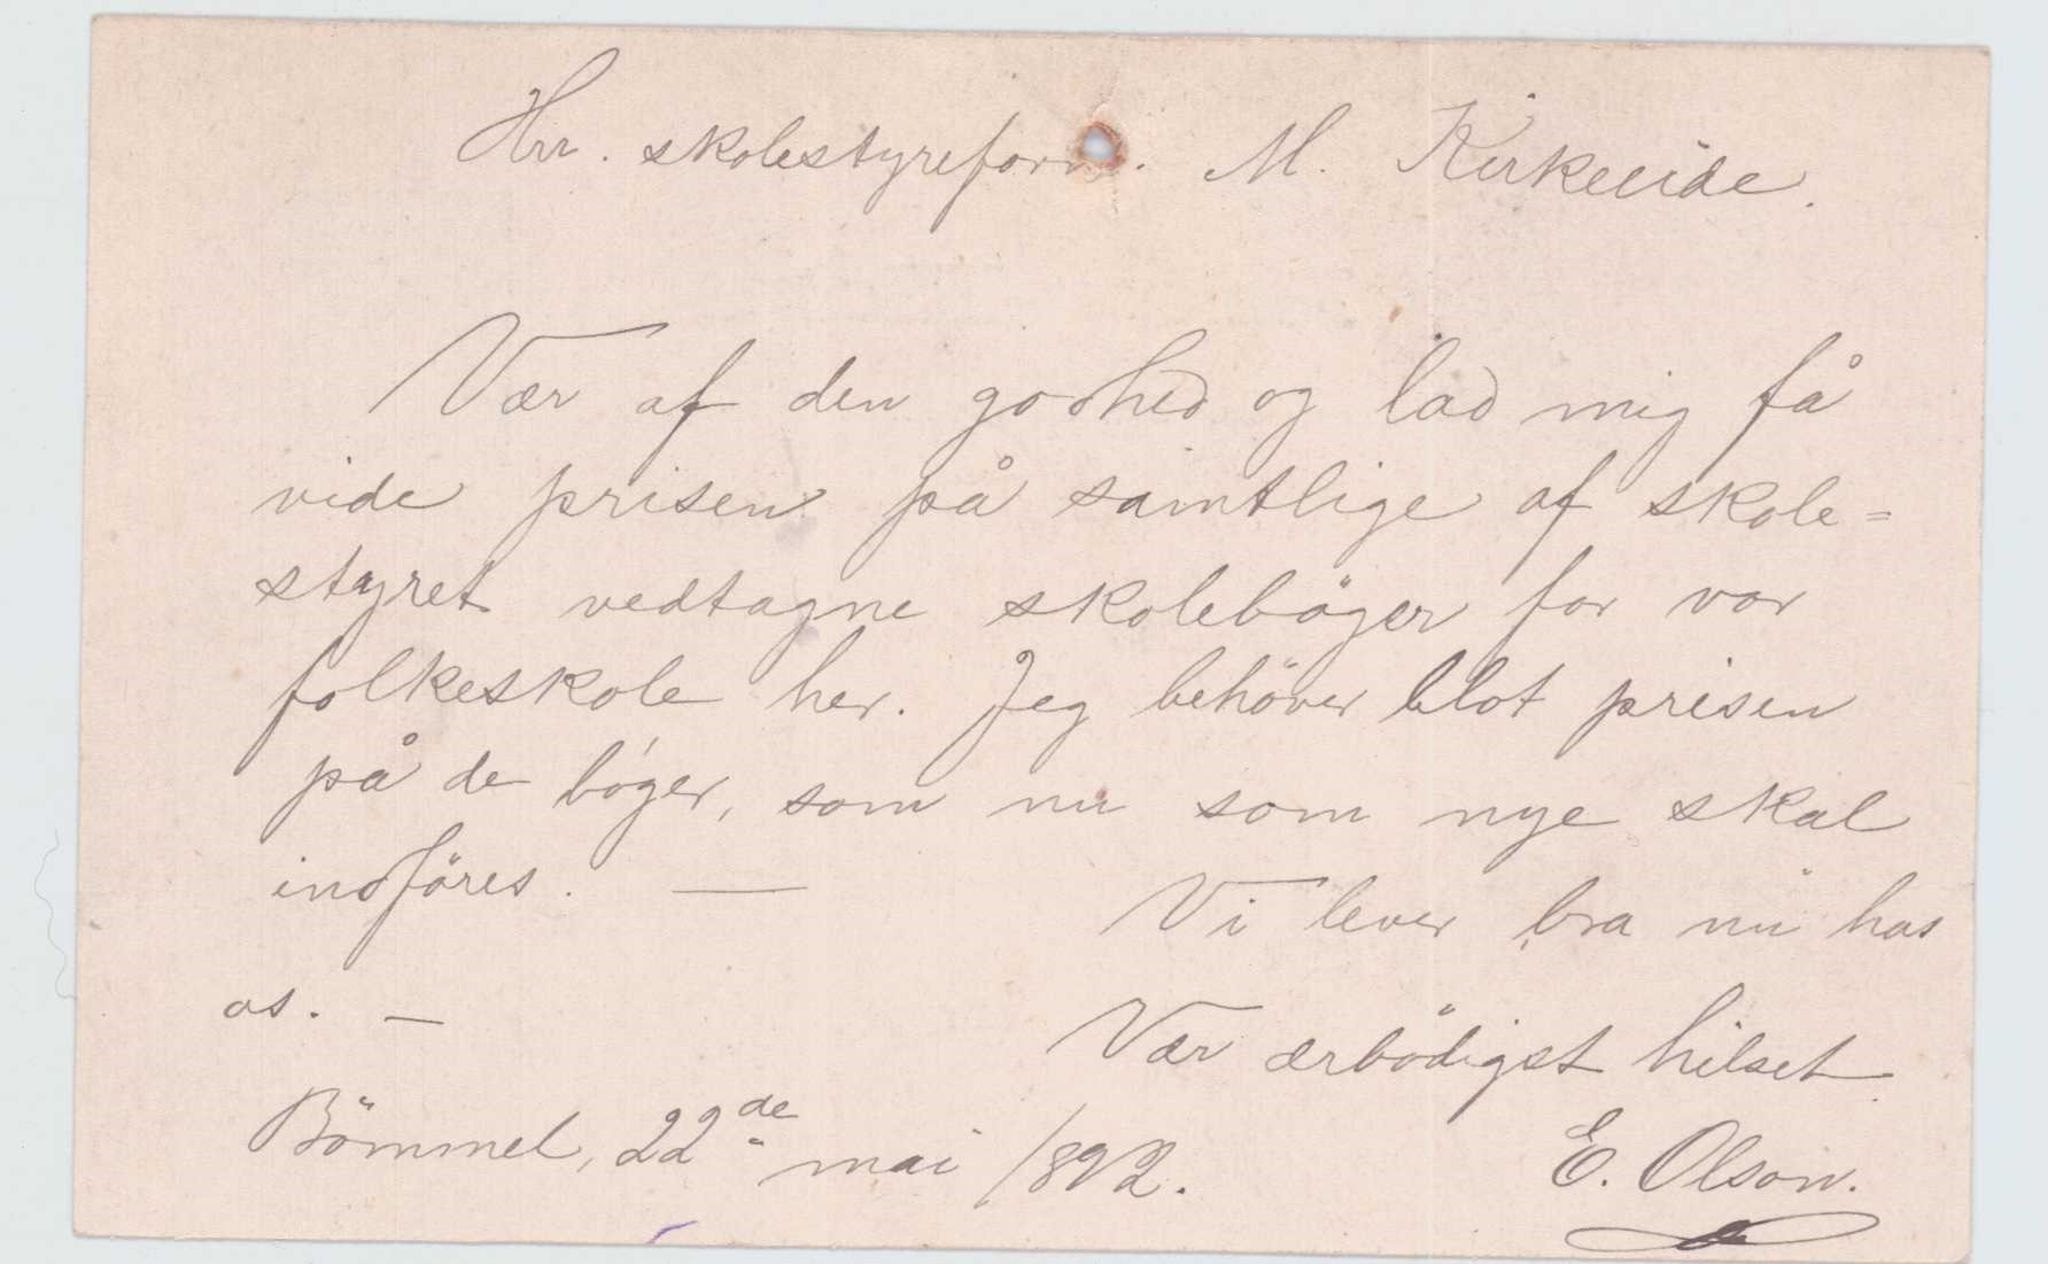 Hrr. skolestyreform. M. Kirkeeide.
Vær af den godhed og lad mig få
vide prisen på samtlige af skole=
styret vedtagne skoleböger for vor
folkeskole her. Jeg behöver blot prisen
på de bøger, som nu som nye skal
indföres. —
Vi lever bra nu hos
os. —
Vær ærbödigst hilset
Bömmel, 22de mai 1892.
E. Olson.